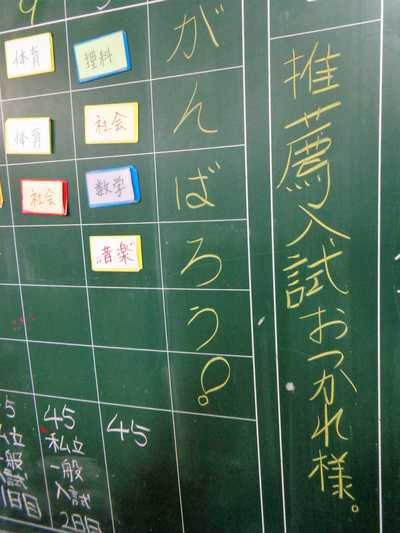 推薦入試おつかれ様。
がんばろう!
理科
社会
数学
音楽
45
45
私立
一般
入試
2日目
体育
体育
社会